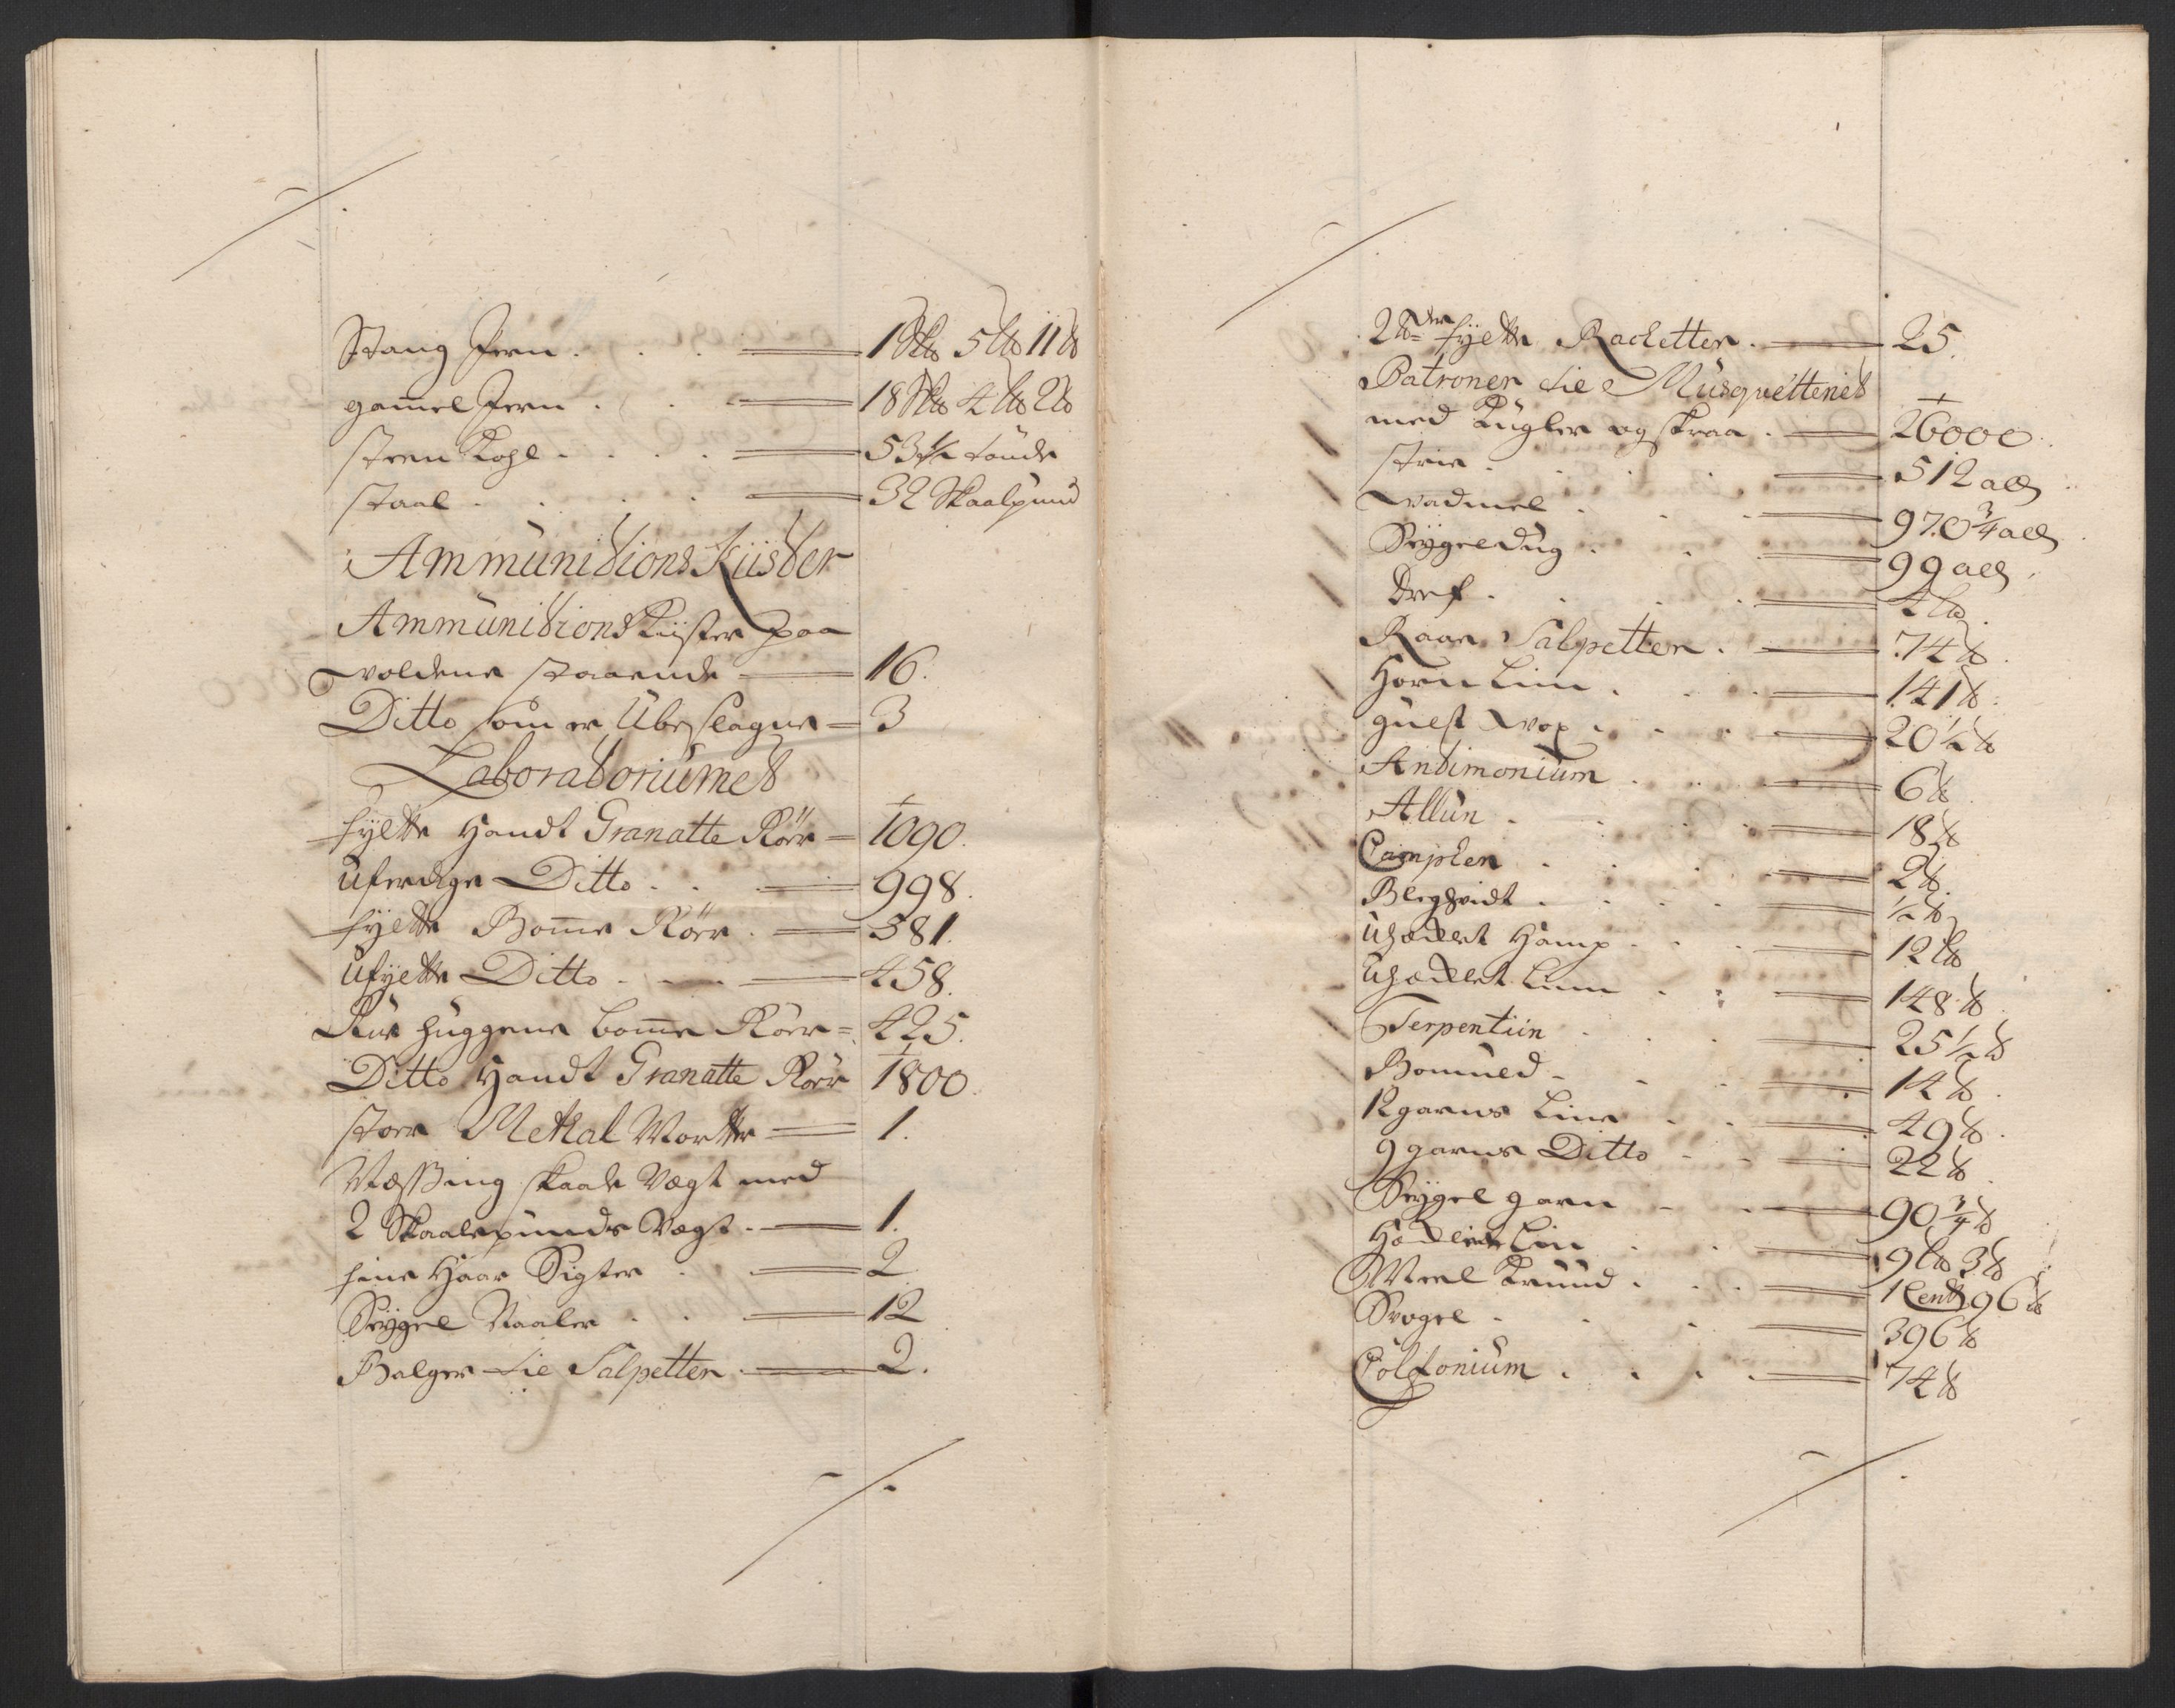 Stang Jern . . . 1 S℔ 5 L℔ 11 ℔
gam̄el Jern . . . 18 S℔ 4 L℔ 2 ℔
Steen Kohl . . . . 53 ½ tönde
Staal . . . . 32 Skaalpund
Ammunitions Kiister
Ammunitions Kiister paa
voldene staaende 16.
Ditto som er Ubeslagne 3
Laboratoriumet
fylte Handt Granatte Rör 1090.
Uferdige Ditto . . 998.
fylte Bom̄e Rör . 381.
Ufylte Ditto . 458.
huggene bom̄e Rör 425.
Ditto Handt Granatte Rör 1800.
stoer Metal Morter 1.
Messing skaale Vegt med
2 Skaalpunds Vegt . 1.
fine Haar Sigter . 2
Seygel Naaler . . 12
Balger til Salpetter . 2.
2 ℔der fylte Racketter . 25.
Patroner til Musquetteriet
med Kugler og skraa . 26000
strie . . . 512 all
Vadmel . . . 970 ¾ all
Seygeldug . . . 99 all
Dref . . . 4 L℔
Raae Salpetter . 74 ℔
Horn Liim . . . 141 ℔
guelt Vox . . . 20 ½ ℔
Antimonium . . . 6 ℔
Allun . . . 18 ℔
Campher . . . 2 ℔
Bleghvidt . . . ½ ℔
Uheclet Hamp . . . 12 L℔
Uheclet Liin . . 148 ℔
Terpentiin . . . 25 ½ ℔
Bomuld . . . 14 ℔
12 garns Line . . 49 ℔
9 garns Ditto . . 22 ℔
Seygel garn . . 90 ¾ ℔
Heclet Lin . . 9 L℔ 3 ℔
Meel Krund . . . 1 Centr 96 ℔
Svogel . . . 396 ℔
Colfonium . . . . 74 ℔